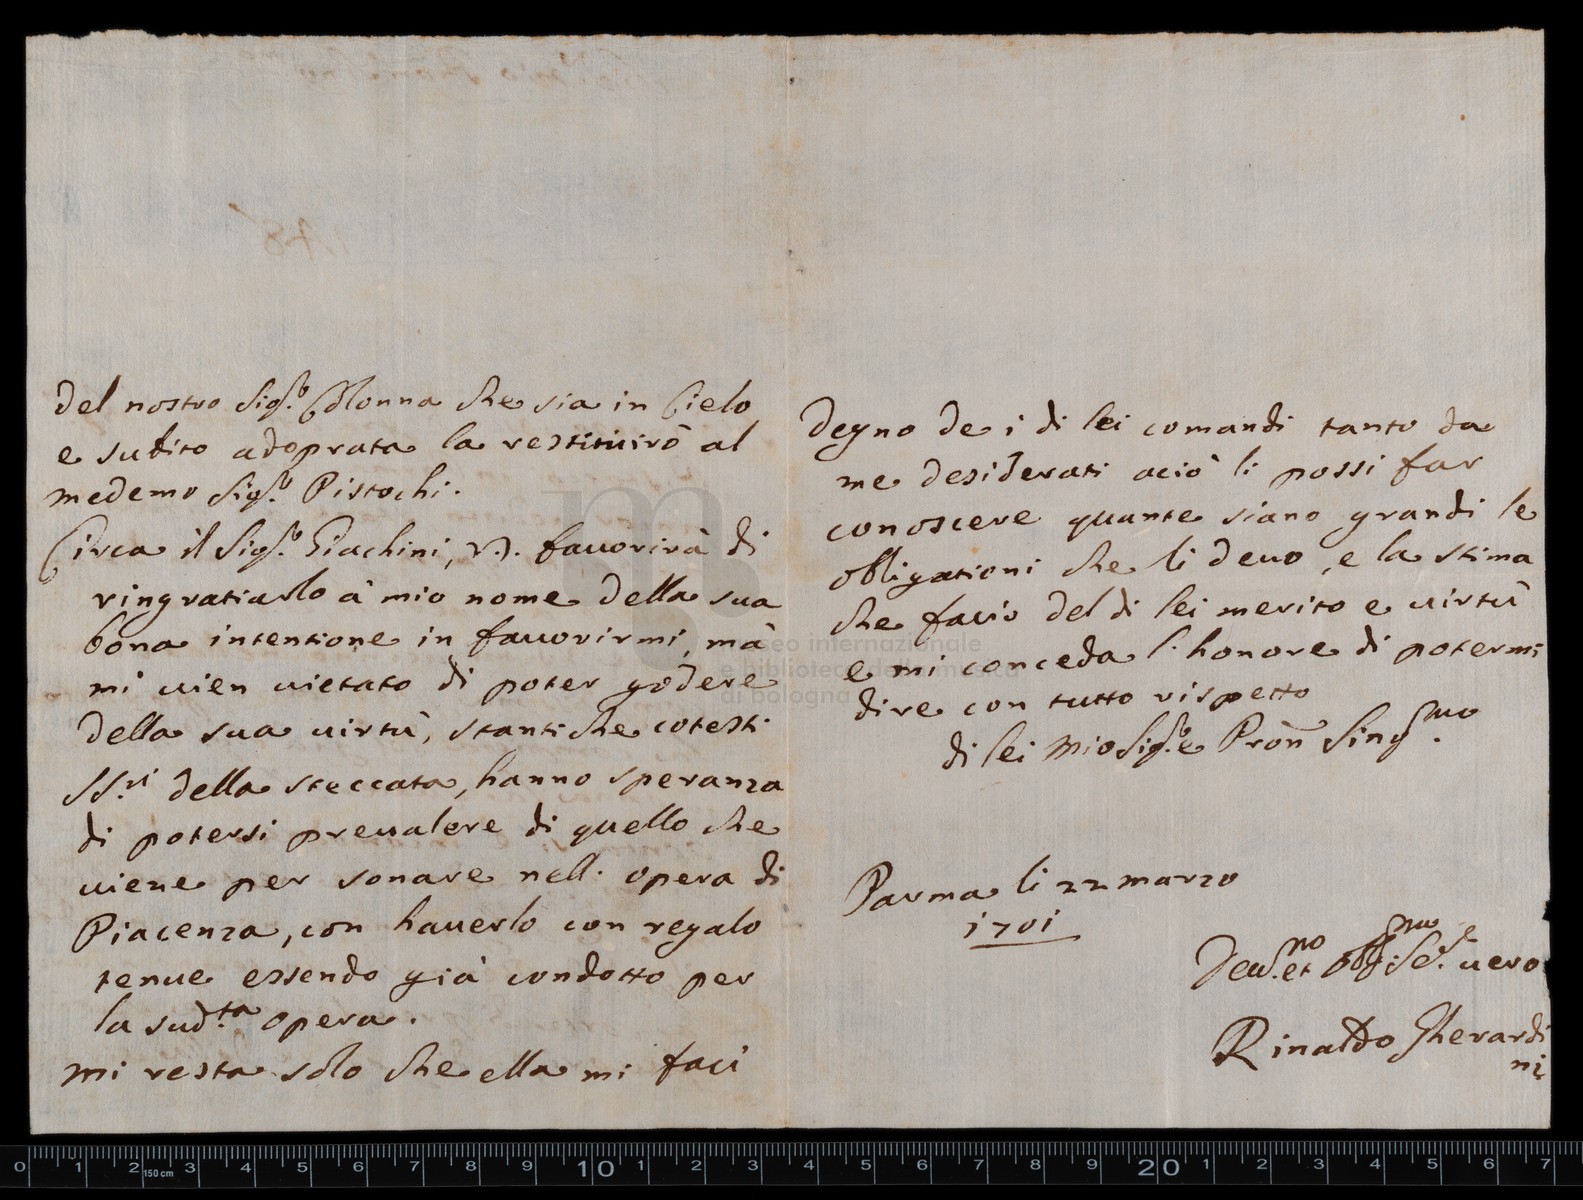 del nostro Sig.r Colonna che sia in Cielo
e subito adoprata la restituirò al
medemo Sig.r Pistochi.
Circa il Sig.r Giachini, V.S. favorirà di
ringratiarlo à mio nome della sua
bona intentione in favorirmi, mà
mi vien vietato di poter godere
della sua virtù, stanti che cotesti
SS.ri della steccata, hanno speranza
di potersi prevalere di quello che
viene per sonare nell' opera di
Piacenza, con haverlo con regalo
tenue essendo già condotto per
la sud.ta opera.
mi resta solo che ella mi faci
degno de i di lei comandi tanto da
me desiderati aciò li possi far
conoscere quante siano grandi le
obligationi che li devo, e la stima
che facio del di lei merito e virtù
e mi conceda l' honore di potermi
dire con tutto rispetto
di lei mio Sig.r e Pron Sing.mo
Parma li 22 marzo
1701
Dev.mo et obl.mo Se.re vero
Rinaldo Gherardi
ni
museo internazionale
e biblioteca della musica
di bologna
0 1 2 150 cm 3 4 5 6 7 8 9 10 1 2 3 4 5 6 7 8 9 20 1 2 3 4 5 6 7